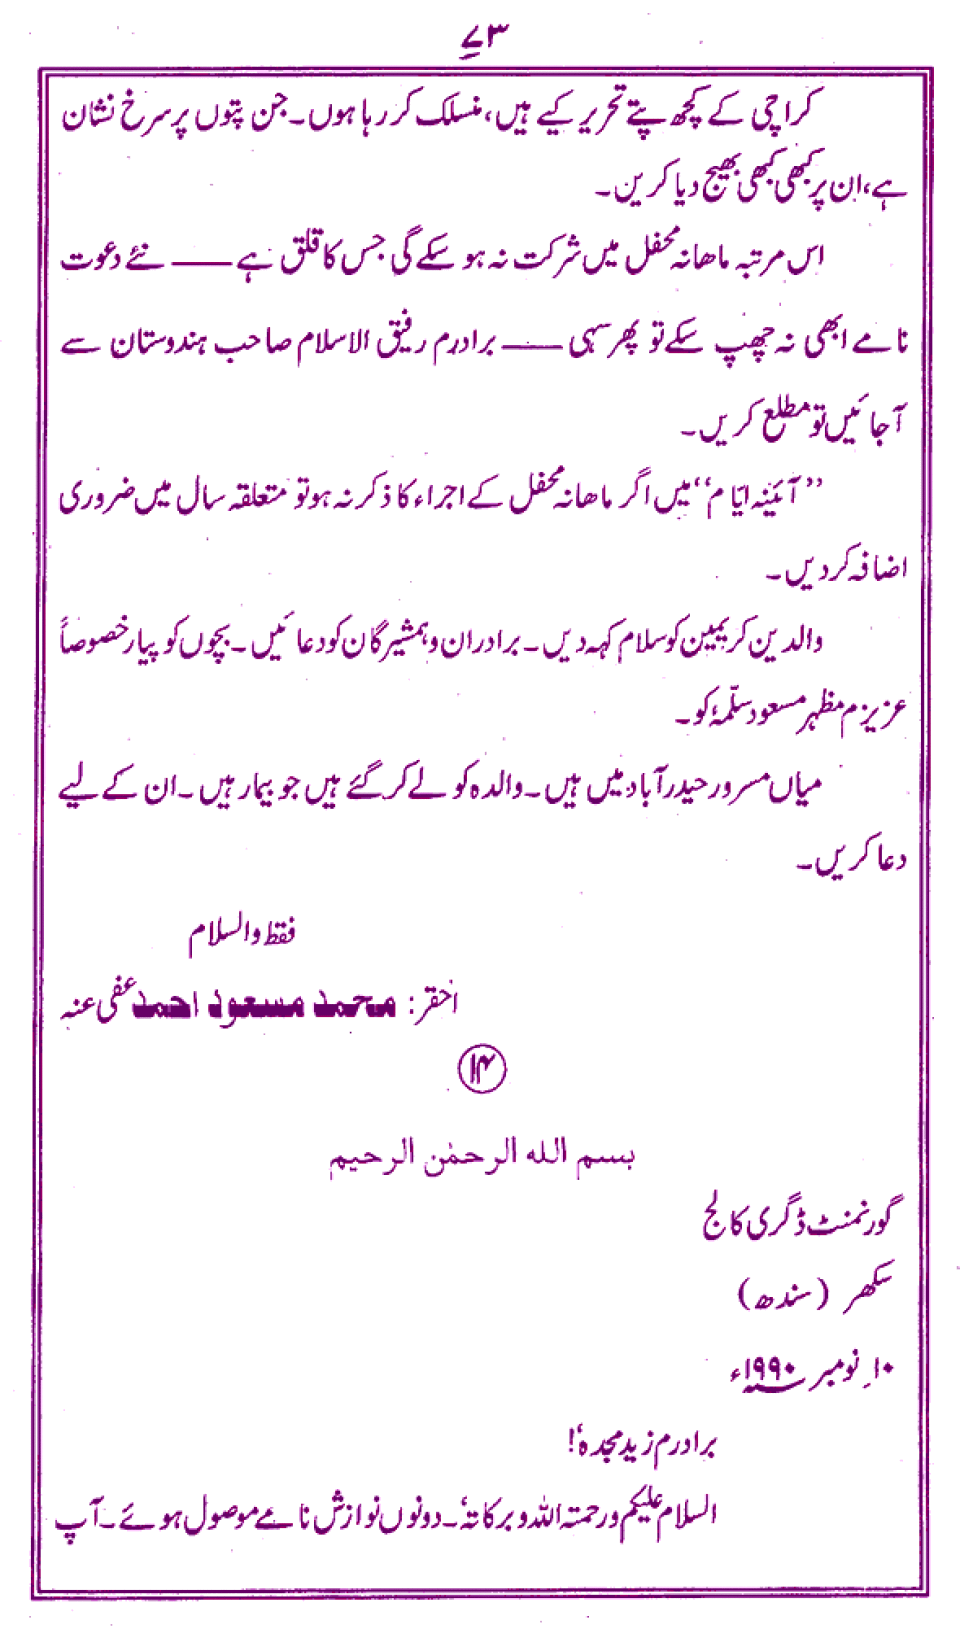 ۷۳
کراچی کے کچھ پتے تحریر کیے ہیں، منسلک کر رہا ہوں۔ جن پتوں پر سرخ نشان
ہے، ان پر کبھی کبھی بھیج دیا کریں۔
اس مرتبہ ماھانہ محفل میں شرکت نہ ہو سکے گی جس کا قلق ہے —— نئے دعوت
نامے ابھی نہ چھپ سکے تو پھر سہی —— برادرم رفیق الاسلام صاحب ہندوستان سے
آجائیں تو مطلع کریں۔
’’آئینہ ایّام‘‘ میں اگر ماھانہ محفل کے اجراء کا ذکر نہ ہو تو متعلقہ سال میں ضروری
اضافہ کردیں۔
والدین کریمین کو سلام کہہ دیں۔ برادران و ہمشیرگان کو دعائیں۔ بچوں کو پیار خصوصاً
عزیزم مظہر مسعود سلّمہٗ کو۔
میاں مسرور حیدرآباد میں ہیں۔ والدہ کو لے کر گئے ہیں جو بیمار ہیں۔ ان کے لیے
دعا کریں۔
فقط والسلام
احقر: محمد مسعود احمد عفی عنہ
۱۴
بسم الله الرحمٰن الرحيم
گورنمنٹ ڈگری کالج
سکھر (سندھ)
۱۰؍ نومبر ۱۹۹۰ء
برادرم زید مجدہٗ!
السلام علیکم ورحمتہ اللہ وبرکاتہٗ۔ دونوں نوازش نامے موصول ہوئے۔ آپ